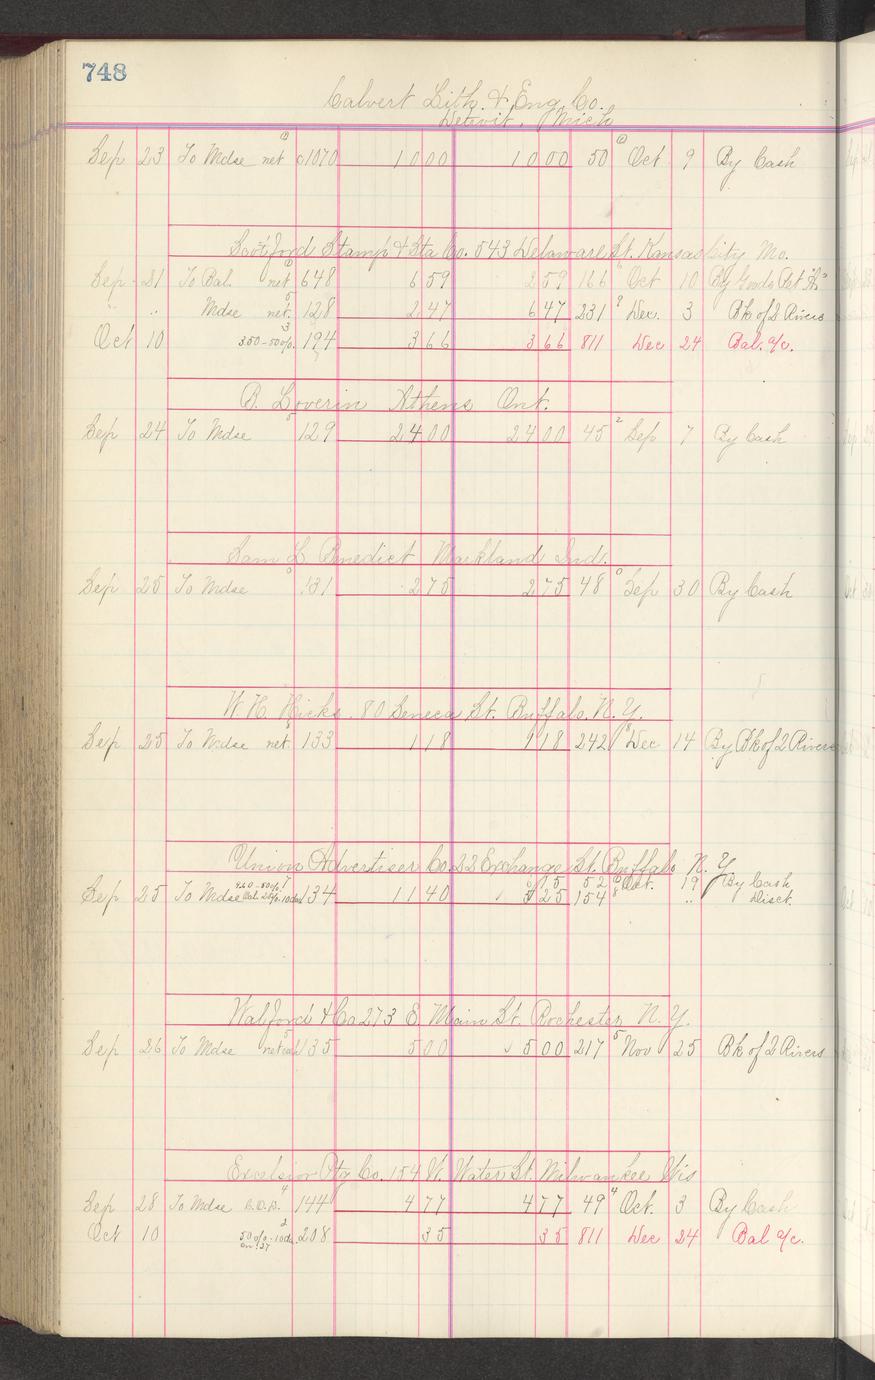 748
Calvert Lith. & Eng. Co.
Detroit, Mich
Sep 23 To Mdse net 1070 10 00 10 00 50 Oct 9 By Cash
Scotford Stamp & Sta Co. 543 Delaware St. Kansas City Mo.
Sep 21 To Bal. net 648 6 59 2 59 166 Oct 10 By Goods Ret
" " Mdse net. 128 2 47 6 47 231 Dec. 3 Bk of 2 Rivers
Oct 10 3.50-50% 194 3 66 3 66 811 Dec 24 Bal. a/c.
B. Loverin Athens Ont.
Sep 24 To Mdse 129 24 00 24 00 45 Sep 7 By Cash
Sam L Benedict Markland Ind.
Sep 25 To Mdse 131 2 75 2 75 48 Sep 30 By Cash
W. H. Hicks. 80 Seneca St. Buffalo. N. Y.
Sep 25 To Mdse net. 133 1 18 1 18 242 Dec 14 By Bk of 2 Rivers
Union Advertiser Co. 22 Exchange St. Buffalo N. Y.
15 52 Oct. 19 By Cash
Sep 25 To Mdse 134 11 40 25 154 " Disct.
Walford & Co 273 E. Main St. Rochester N. Y.
Sep 26 To Mdse net 135 5 00 5 00 217 Nov 25 Bk of 2 Rivers
Excelsior Ptg Co. 154 W. Water St. Milwaukee Wis
Sep 28 To Mdse C.O.D. 144 4 77 4 77 49 Oct. 3 By Cash
Oct 10 50% 10ds 208 35 35 811 Dec 24 Bal a/c.